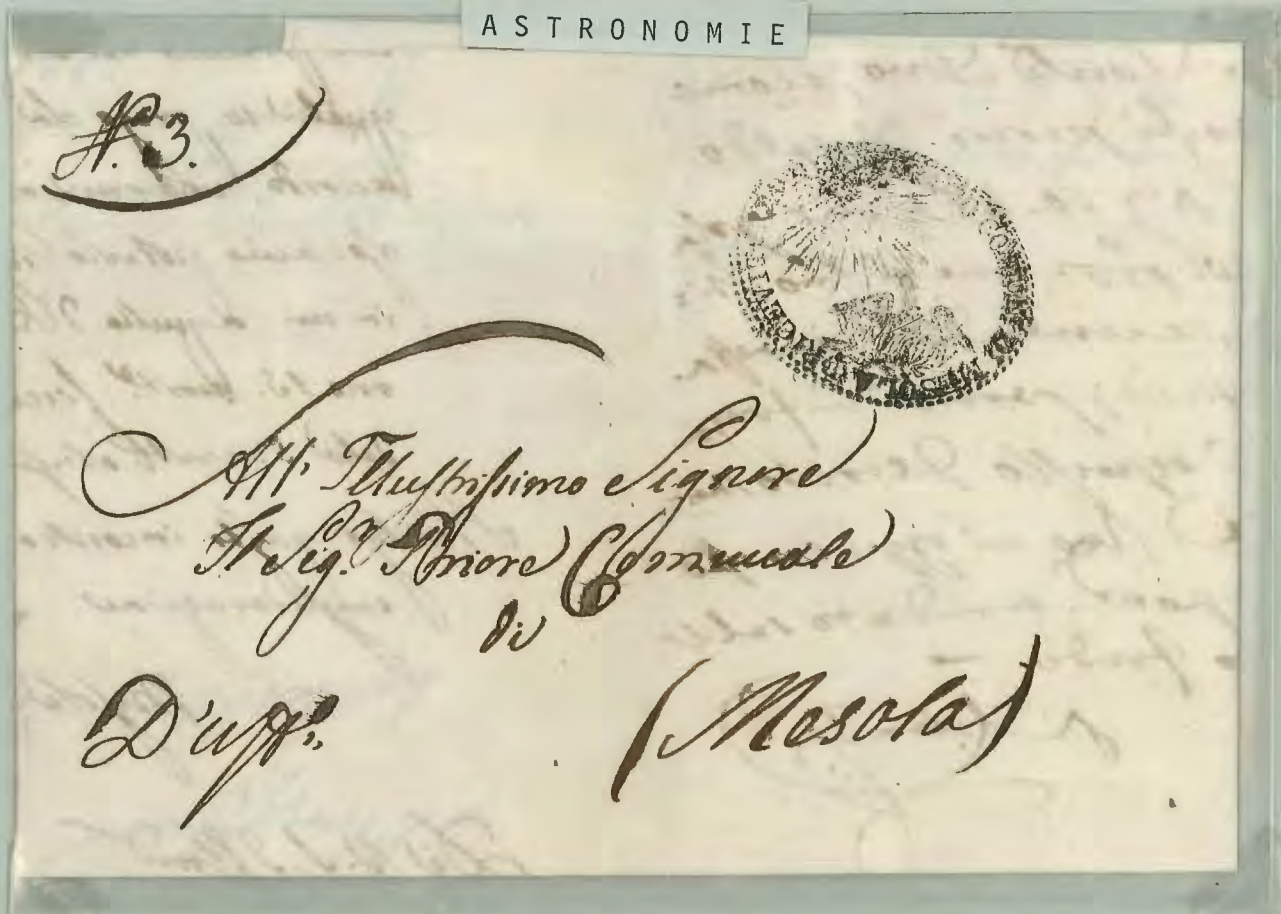 ASTRONOMIE
N.º 3.
All' Illustrissimo Signore
Il Sig.r Priore Comunale
di
(Mesola)
D'uff.º